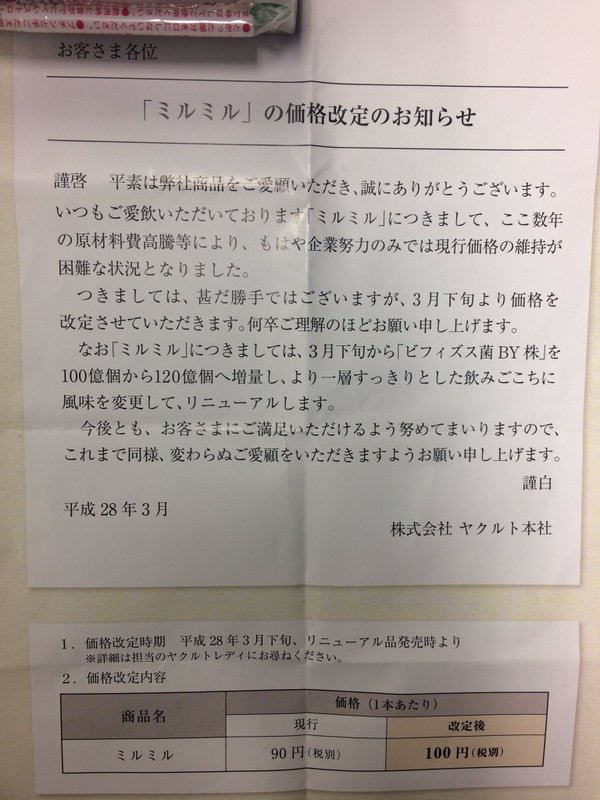 お客さま各位
「ミルミル」の価格改定のお知らせ
謹啓　平素は弊社商品をご愛顧いただき、誠にありがとうございます。
いつもご愛飲いただいております「ミルミル」につきまして、ここ数年
の原材料費高騰等により、もはや企業努力のみでは現行価格の維持が
困難な状況となりました。
つきましては、甚だ勝手ではございますが、3月下旬より価格を
改定させていただきます。何卒ご理解のほどお願い申し上げます。
なお「ミルミル」につきましては、3月下旬から「ビフィズス菌BY株」を
100億個から120億個へ増量し、より一層すっきりとした飲みごこちに
風味を変更して、リニューアルします。
今後とも、お客さまにご満足いただけるよう努めてまいりますので、
これまで同様、変わらぬご愛顧をいただきますようお願い申し上げます。
謹白
平成28年3月
株式会社 ヤクルト本社
1．価格改定時期　平成28年3月下旬、リニューアル品発売時より
※詳細は担当のヤクルトレディにお尋ねください。
2．価格改定内容
商品名　価格（1本あたり）
現行　改定後
ミルミル　90円（税別）　100円（税別）